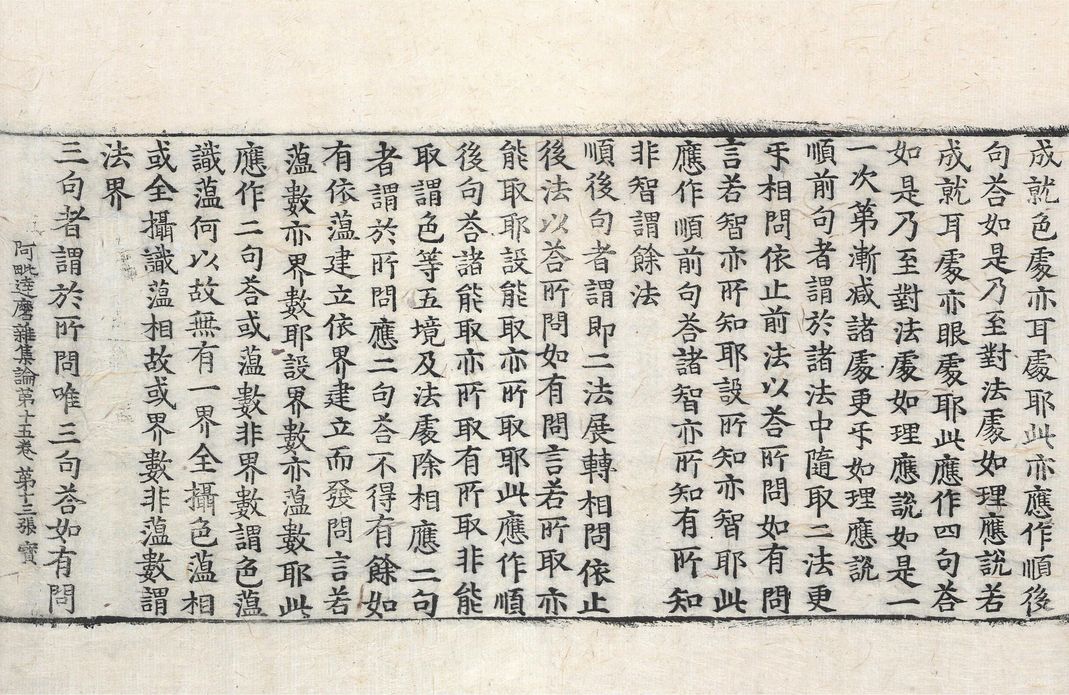 成就色處亦耳處耶此亦應作順後
句荅如是乃至對法處如理應說若
成就耳處亦眼處耶此應作四句荅
如是乃至對法處如理應說如是一
一次第漸减諸處更㸦如理應說
順前句者謂於諸法中隨取二法更
㸦相問依止前法以荅所問如有問
言若智亦所知耶設所知亦智耶此
應作順前句荅諸智亦所知有所知
非智謂餘法
順後句者謂即二法展轉相問依止
後法以荅所問如有問言若所取亦
能取耶設能取亦所取耶此應作順
後句荅諸能取亦所取有所取非能
取謂色等五境及法處除相應二句
者謂於所問應二句荅不得有餘如
有依薀建立依界建立而發問言若
薀數亦界數耶設界數亦薀數耶此
應作二句荅或薀數非界數謂色薀
識薀何以故無有一界全攝色薀相
或全攝識薀相故或界數非薀數謂
法界
三句者謂於所問唯三句荅如有問
阿毗達磨雜集論第十五卷 第十三張 寳